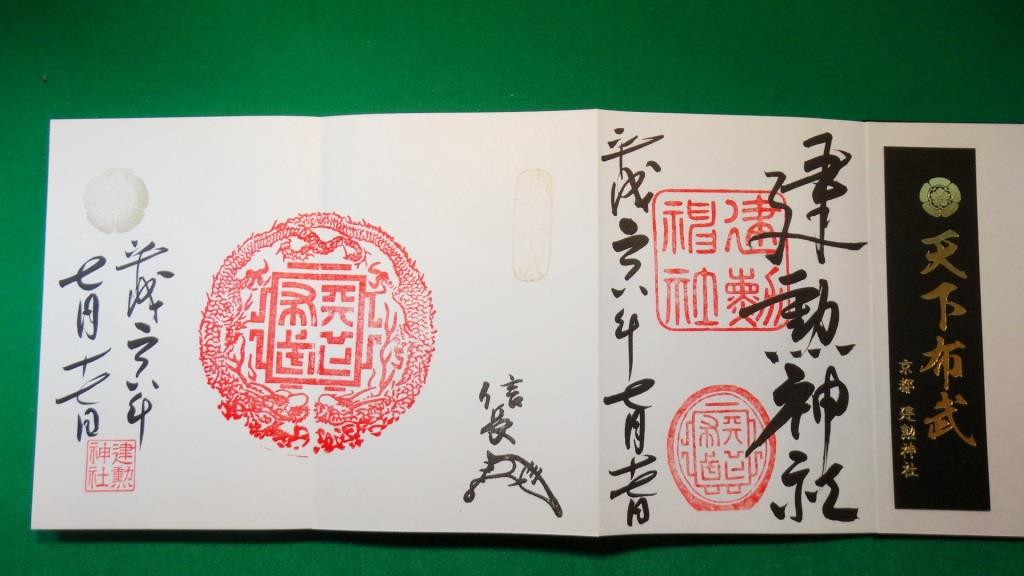 天下布武
京都 建勲神社
建勲神社
建勲神社
天下布武
平成二六年七月十七日
信長
天下布武
平成二六年
七月十七日
建勲神社